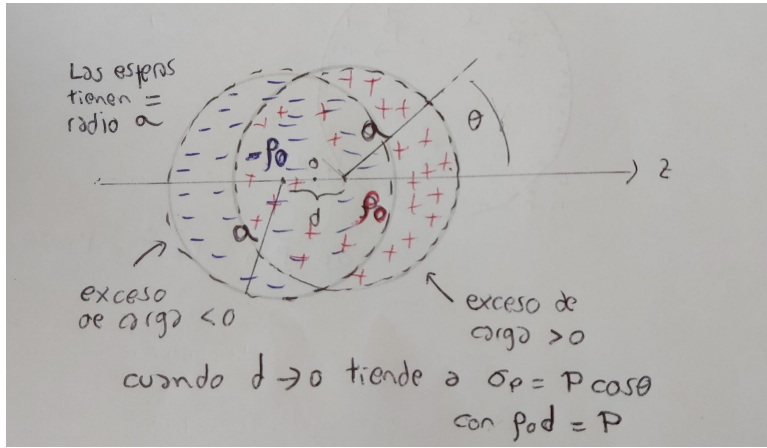 Las esferas
tienen =
radio a
θ
a
-ρ₀
o
z
d
ρ₀
a
exceso
de carga <0
exceso de
carga >0
cuando d → 0 tiende a σₚ = P cosθ
con ρ₀d = P